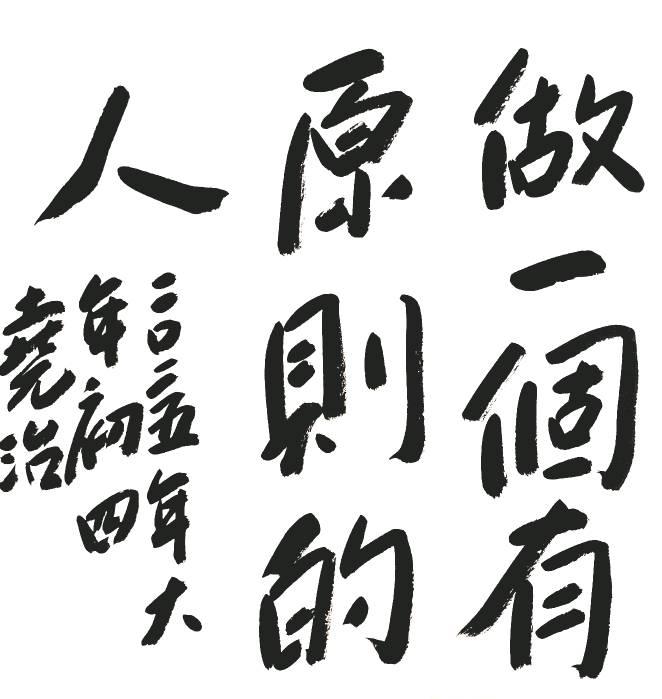 做一個有
原則的
人
二〇二五年大
年初四
堯治